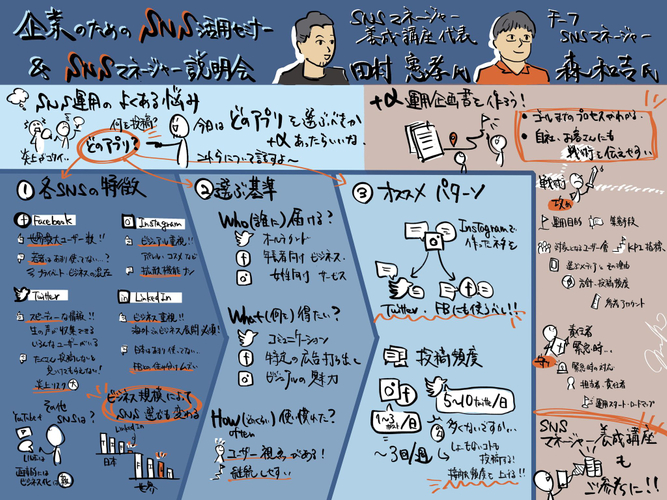 企業のための SNS 活用セミナー
& SNSマネージャー説明会
SNSマネージャー
養成講座代表
田村 憲孝氏
チーフ
SNSマネージャー
森 和吉氏
SNS運用のよくある悩み
何を投稿?
どのアプリ?
炎上がコワイ…
今日はどのアプリを選ぶべきか
+αあったらいいな。
について話すよ〜
+α 運用企画書を作ろう!
ゴールまでのプロセスがわかる
自社、お客さんにも
戦術を伝えやすい
① 各SNSの特徴
Facebook
世界最大ユーザー数!!
Instagram
ビジュアル重視!!
アパレル・コスメなど
拡散機能ナシ
Twitter
スピーディーな情報!!
生の声が収集できる
いろんなユーザーがいる
炎上リスク 大
LinkedIn
ビジネス重視!!
海外はビジネス展開必須!
日本はあまり使ってない。
ビジネス規模によって
SNS選びも変わる
その他
SNSは?
YouTube
LinkedIn
日本
世界
② 選ぶ基準
Who(誰に)届ける?
オールアカウント
年長者向けビジネス、
女性向けサービス
What(何に)得たい?
コミュニケーション
特定の広告打ち出し
ビジュアルの魅力
How(どのくらい)使い慣れた?
often
ユーザー視点がある!
継続しやすい
③ オススメ パターン
Instagramで
作ったネタを
Twitter・FBにも使うべし!!
投稿頻度
5〜10 ツイート/日
〜3回/週
多くないですかい…
しょーもないコトも
投稿する!
接触頻度を上げる!!
戦術
運用目的
KPI指標、
選ぶメディアとその理由
方針、投稿頻度
責任者
緊急時…
緊急時の対応
担当者、責任者
運用スタート・ロードマップ
SNS
マネージャー養成講座
も
ご参考に!!